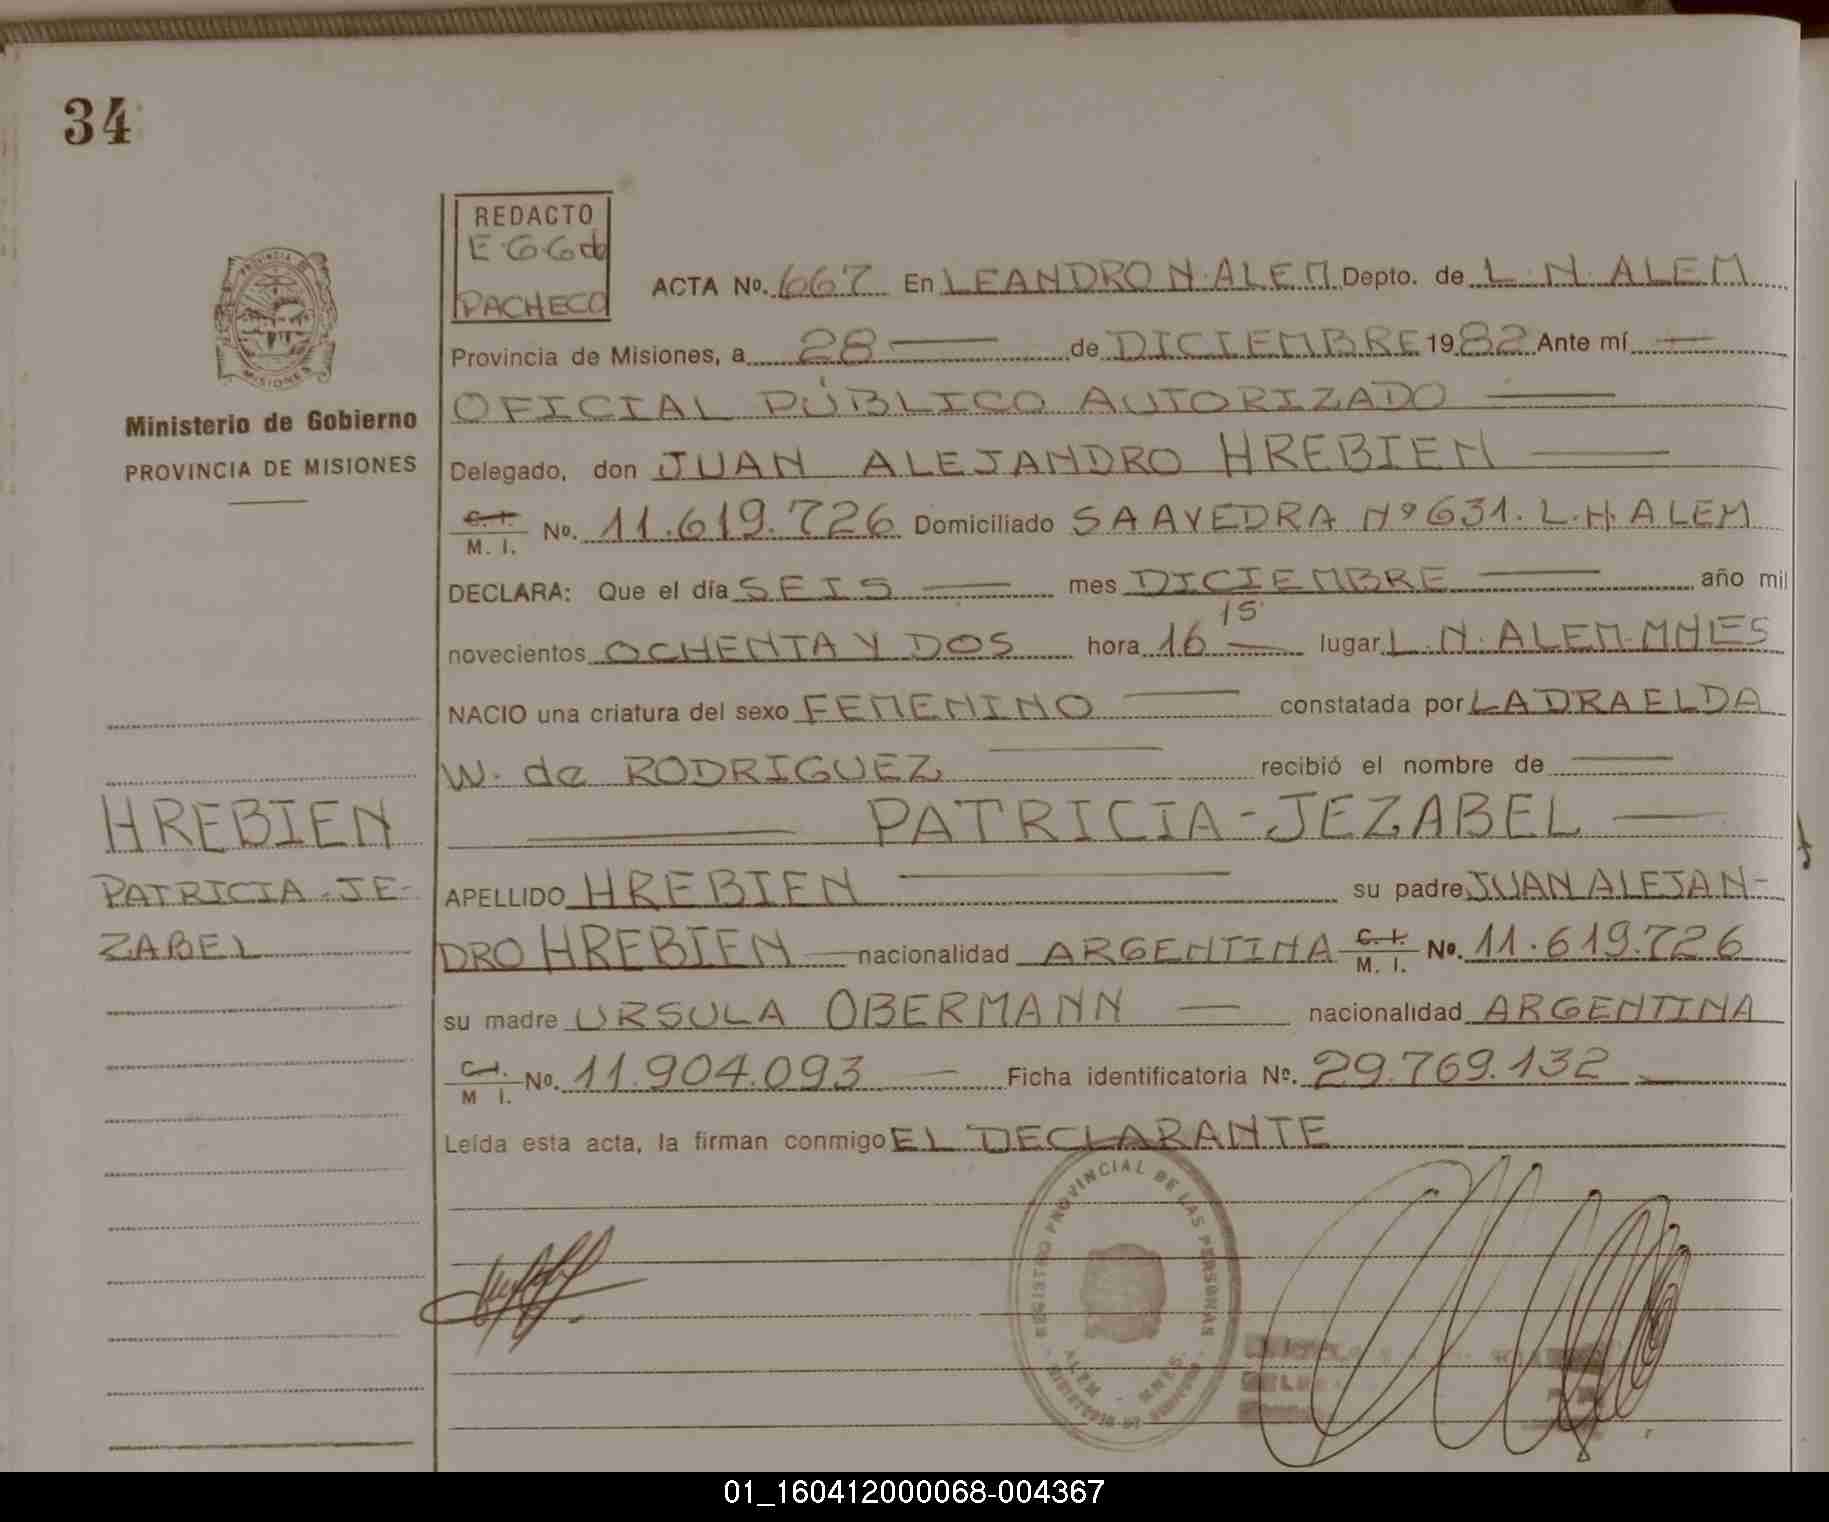 34
REDACTO
E G G de
PACHECO
PROVINCIA DE
MISIONES
Ministerio de Gobierno
PROVINCIA DE MISIONES
ACTA No. 667 En LEANDRO N. ALEM Depto. de L. N. ALEM
Provincia de Misiones, a 28 de DICIEMBRE 1982 Ante mí
OFICIAL PÚBLICO AUTORIZADO
Delegado, don JUAN ALEJANDRO HREBIEN
C. I. M. I. No. 11.619.726 Domiciliado SAAVEDRA Nº 631. L. N. ALEM
DECLARA: Que el día SEIS mes DICIEMBRE año mil
novecientos OCHENTA Y DOS hora 16 15 lugar L. N. ALEM-MNES
NACIO una criatura del sexo FEMENINO constatada por LA DRA ELDA
W. de RODRIGUEZ recibió el nombre de
PATRICIA-JEZABEL
APELLIDO HREBIEN su padre JUAN ALEJAN-
DRO HREBIEN nacionalidad ARGENTINA C. I. M. I. No. 11.619.726
su madre URSULA OBERMANN nacionalidad ARGENTINA
C. I. M I. No. 11.904.093 Ficha identificatoria No. 29.769.132
Leída esta acta, la firman conmigo EL DECLARANTE
HREBIEN
PATRICIA-JE-
ZABEL
REGISTRO PROVINCIAL DE LAS PERSONAS
ALEM - MNES.
01_160412000068-004367